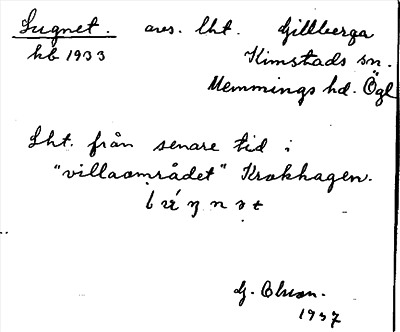 Lugnet. avs. lht. Gillberga
hb 1933 Kimstads sn.
Memmings hd. Ögl
Lht. från senare tid i
"villaområdet" Krokhagen.
G. Olson.
1937